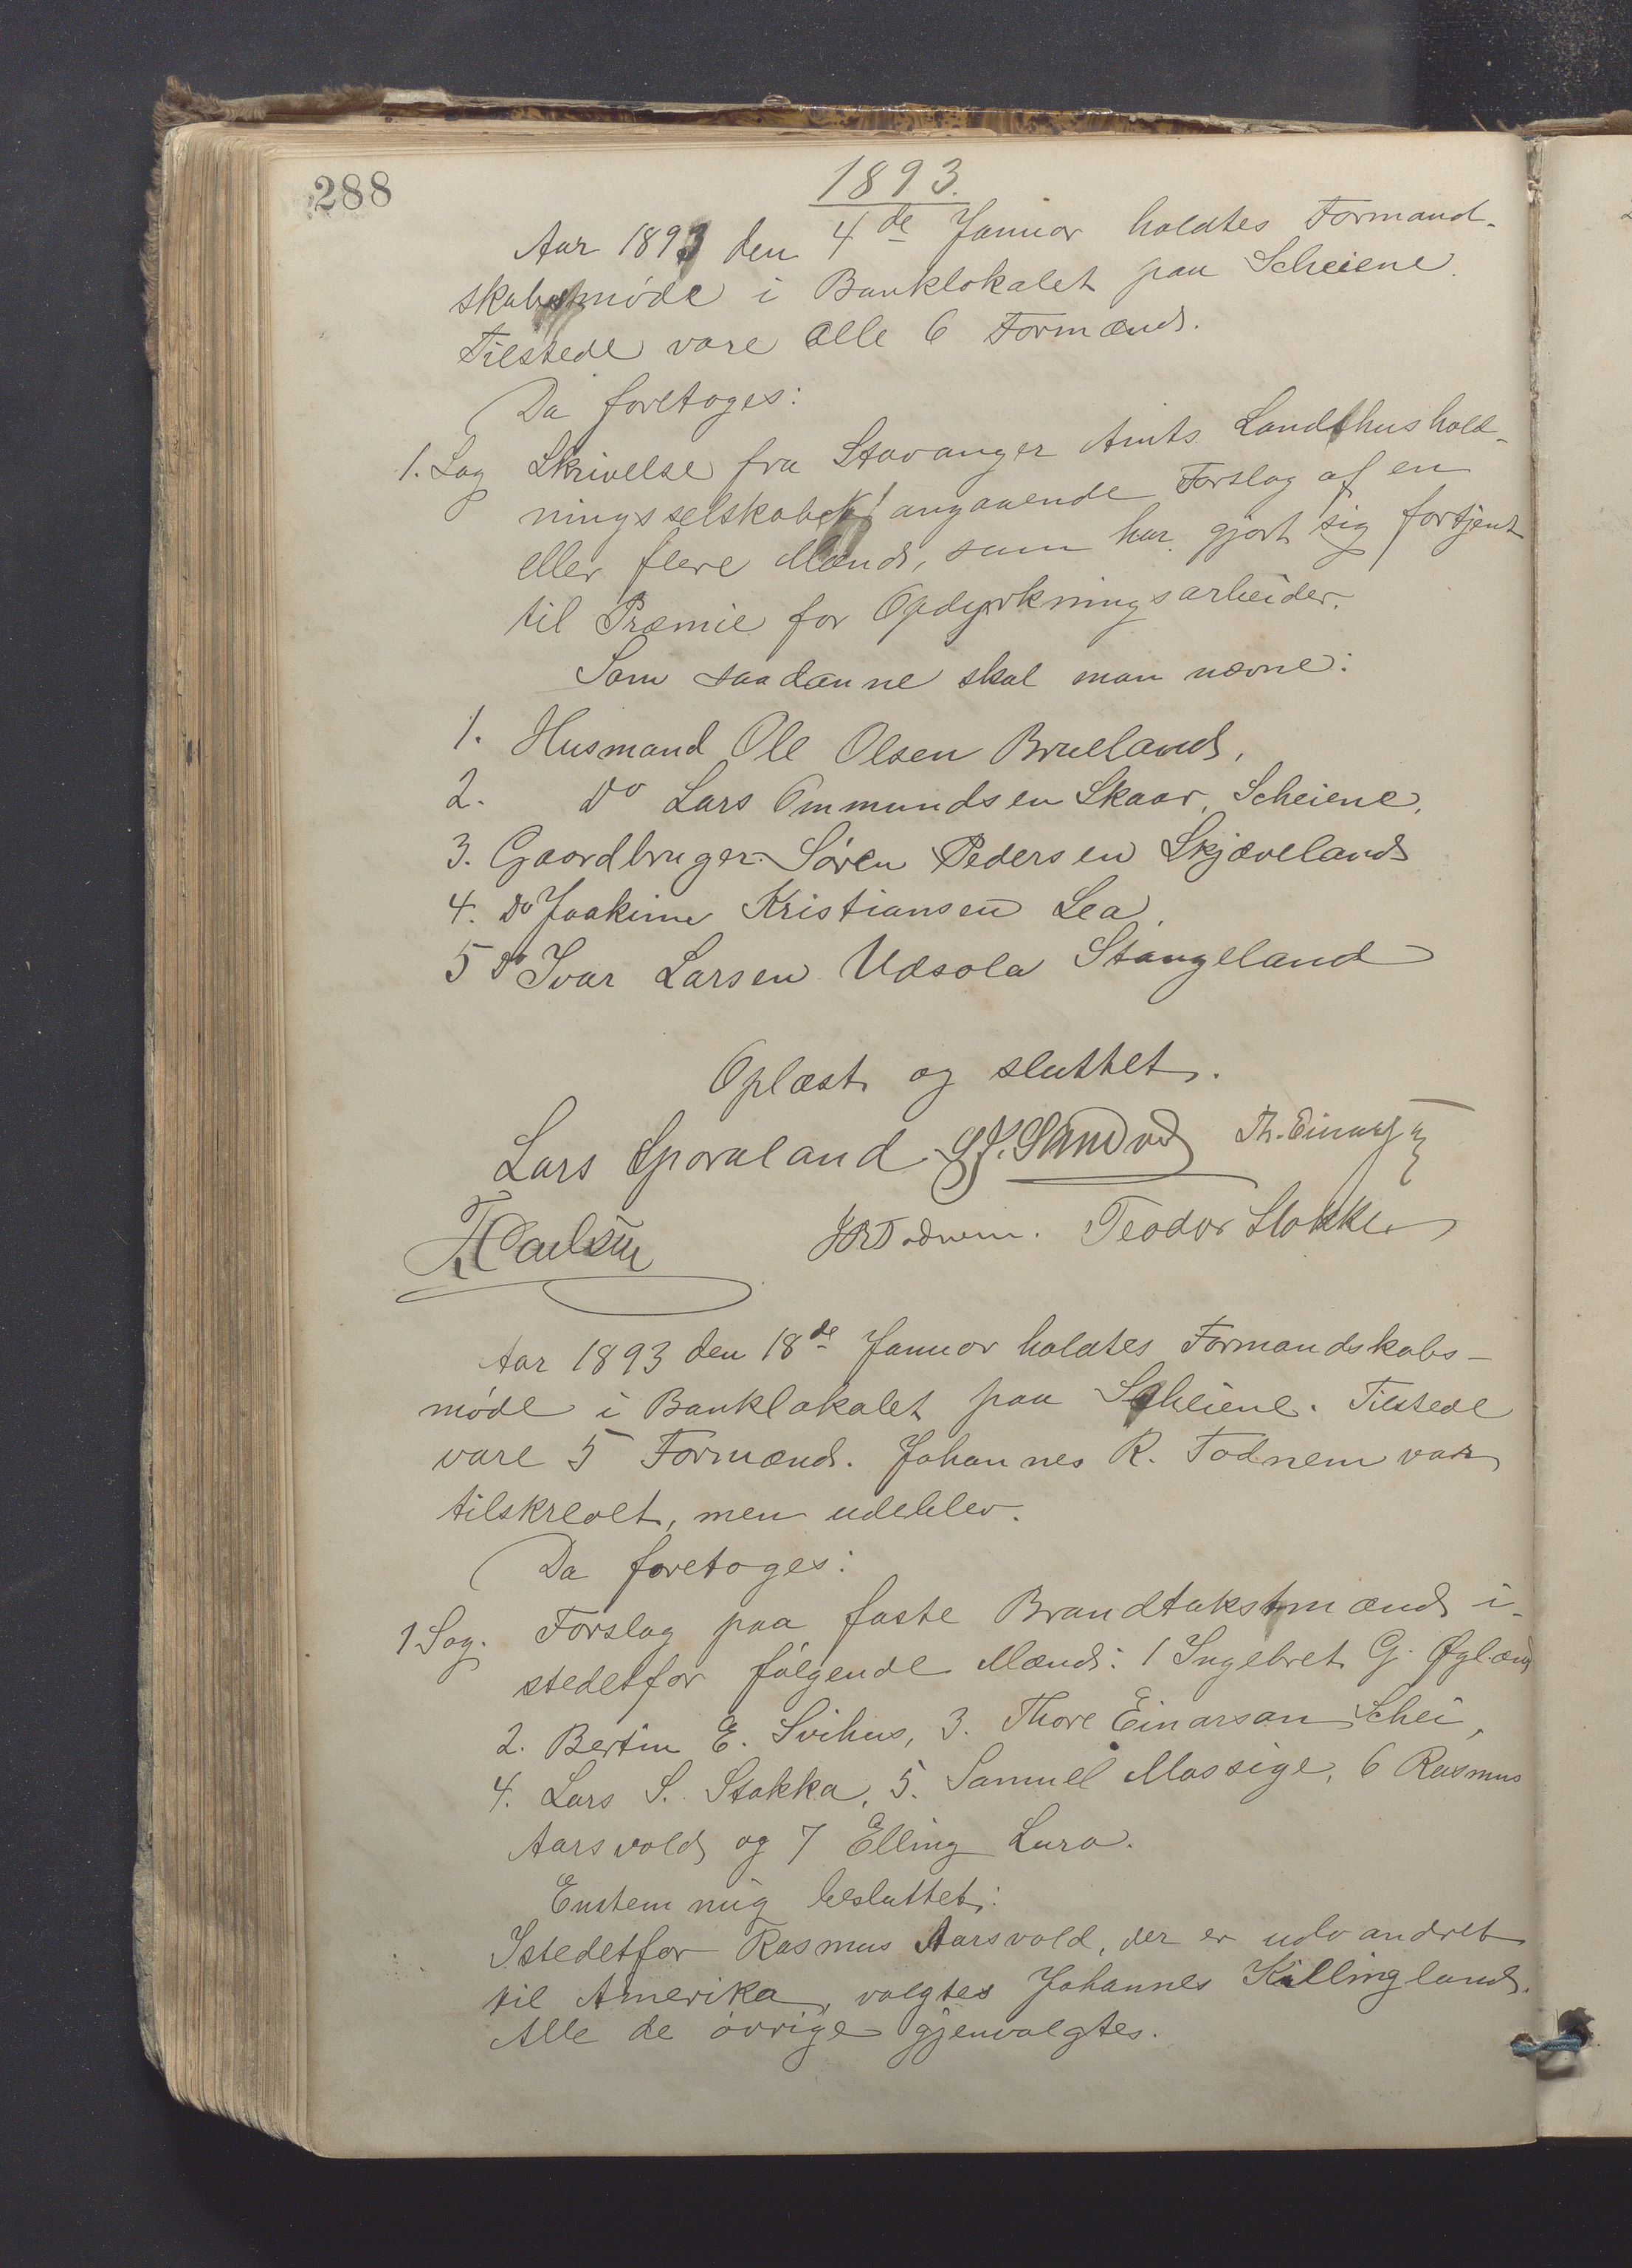 288
1893.
Aar 1893 den 4de Januar holdtes Formand-
skabsmøde i Banklokalet paa Scheiene.
Tilstede vare alle 6 Formænd.
Da foretoges:
1. Sag Skrivelse fra Stavanger Amts Landhushold-
ningsselskab angaaende Forslag af en
eller flere Mænd, som har gjort sig fortjent
til Præmie for Opdyrkningsarbeider.
Som saadanne skal man nævne:
1. Husmand Ole Olsen Brueland,
2. Do Lars Ommundsen Skaar, Scheiene,
3. Gaardbruger Søren Pedersen Skjæveland
4. Do Joakim Kristiansen Lea,
5 Do Ivar Larsen Udsola Stangeland
Oplæst og sluttet.
Lars Sporaland S. Sandved Th. Einarsen
T. Carlsen JRTodnem. Teodor Stokke
Aar 1893 den 18de Januar holdtes Formandskabs-
møde i Banklokalet paa Scheiene. Tilstede
vare 5 Formænd. Johannes R. Todnem var
tilskrevet, men udeblev.
Da foretoges:
1 Sag. Forslag paa faste Brandtakstmænd i-
stedetfor følgende Mænd: 1 Ingebret G. Øglænd
2. Bertin E. Svihus, 3. Thore Einarsen Schei,
4. Lars S. Stokka, 5. Samuel Mossige, 6 Rasmus
Aarsvold og 7 Elling Lura.
Enstemmig besluttet:
Istedetfor Rasmus Aarsvold, der er udvandret
til Amerika, valgtes Johannes Kallingland.
Alle de øvrige gjenvalgtes.